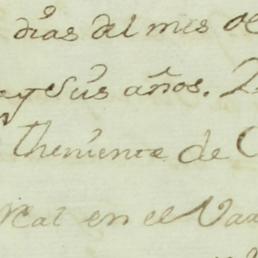 dias del mes de
y sus años.
theniente de
real en el